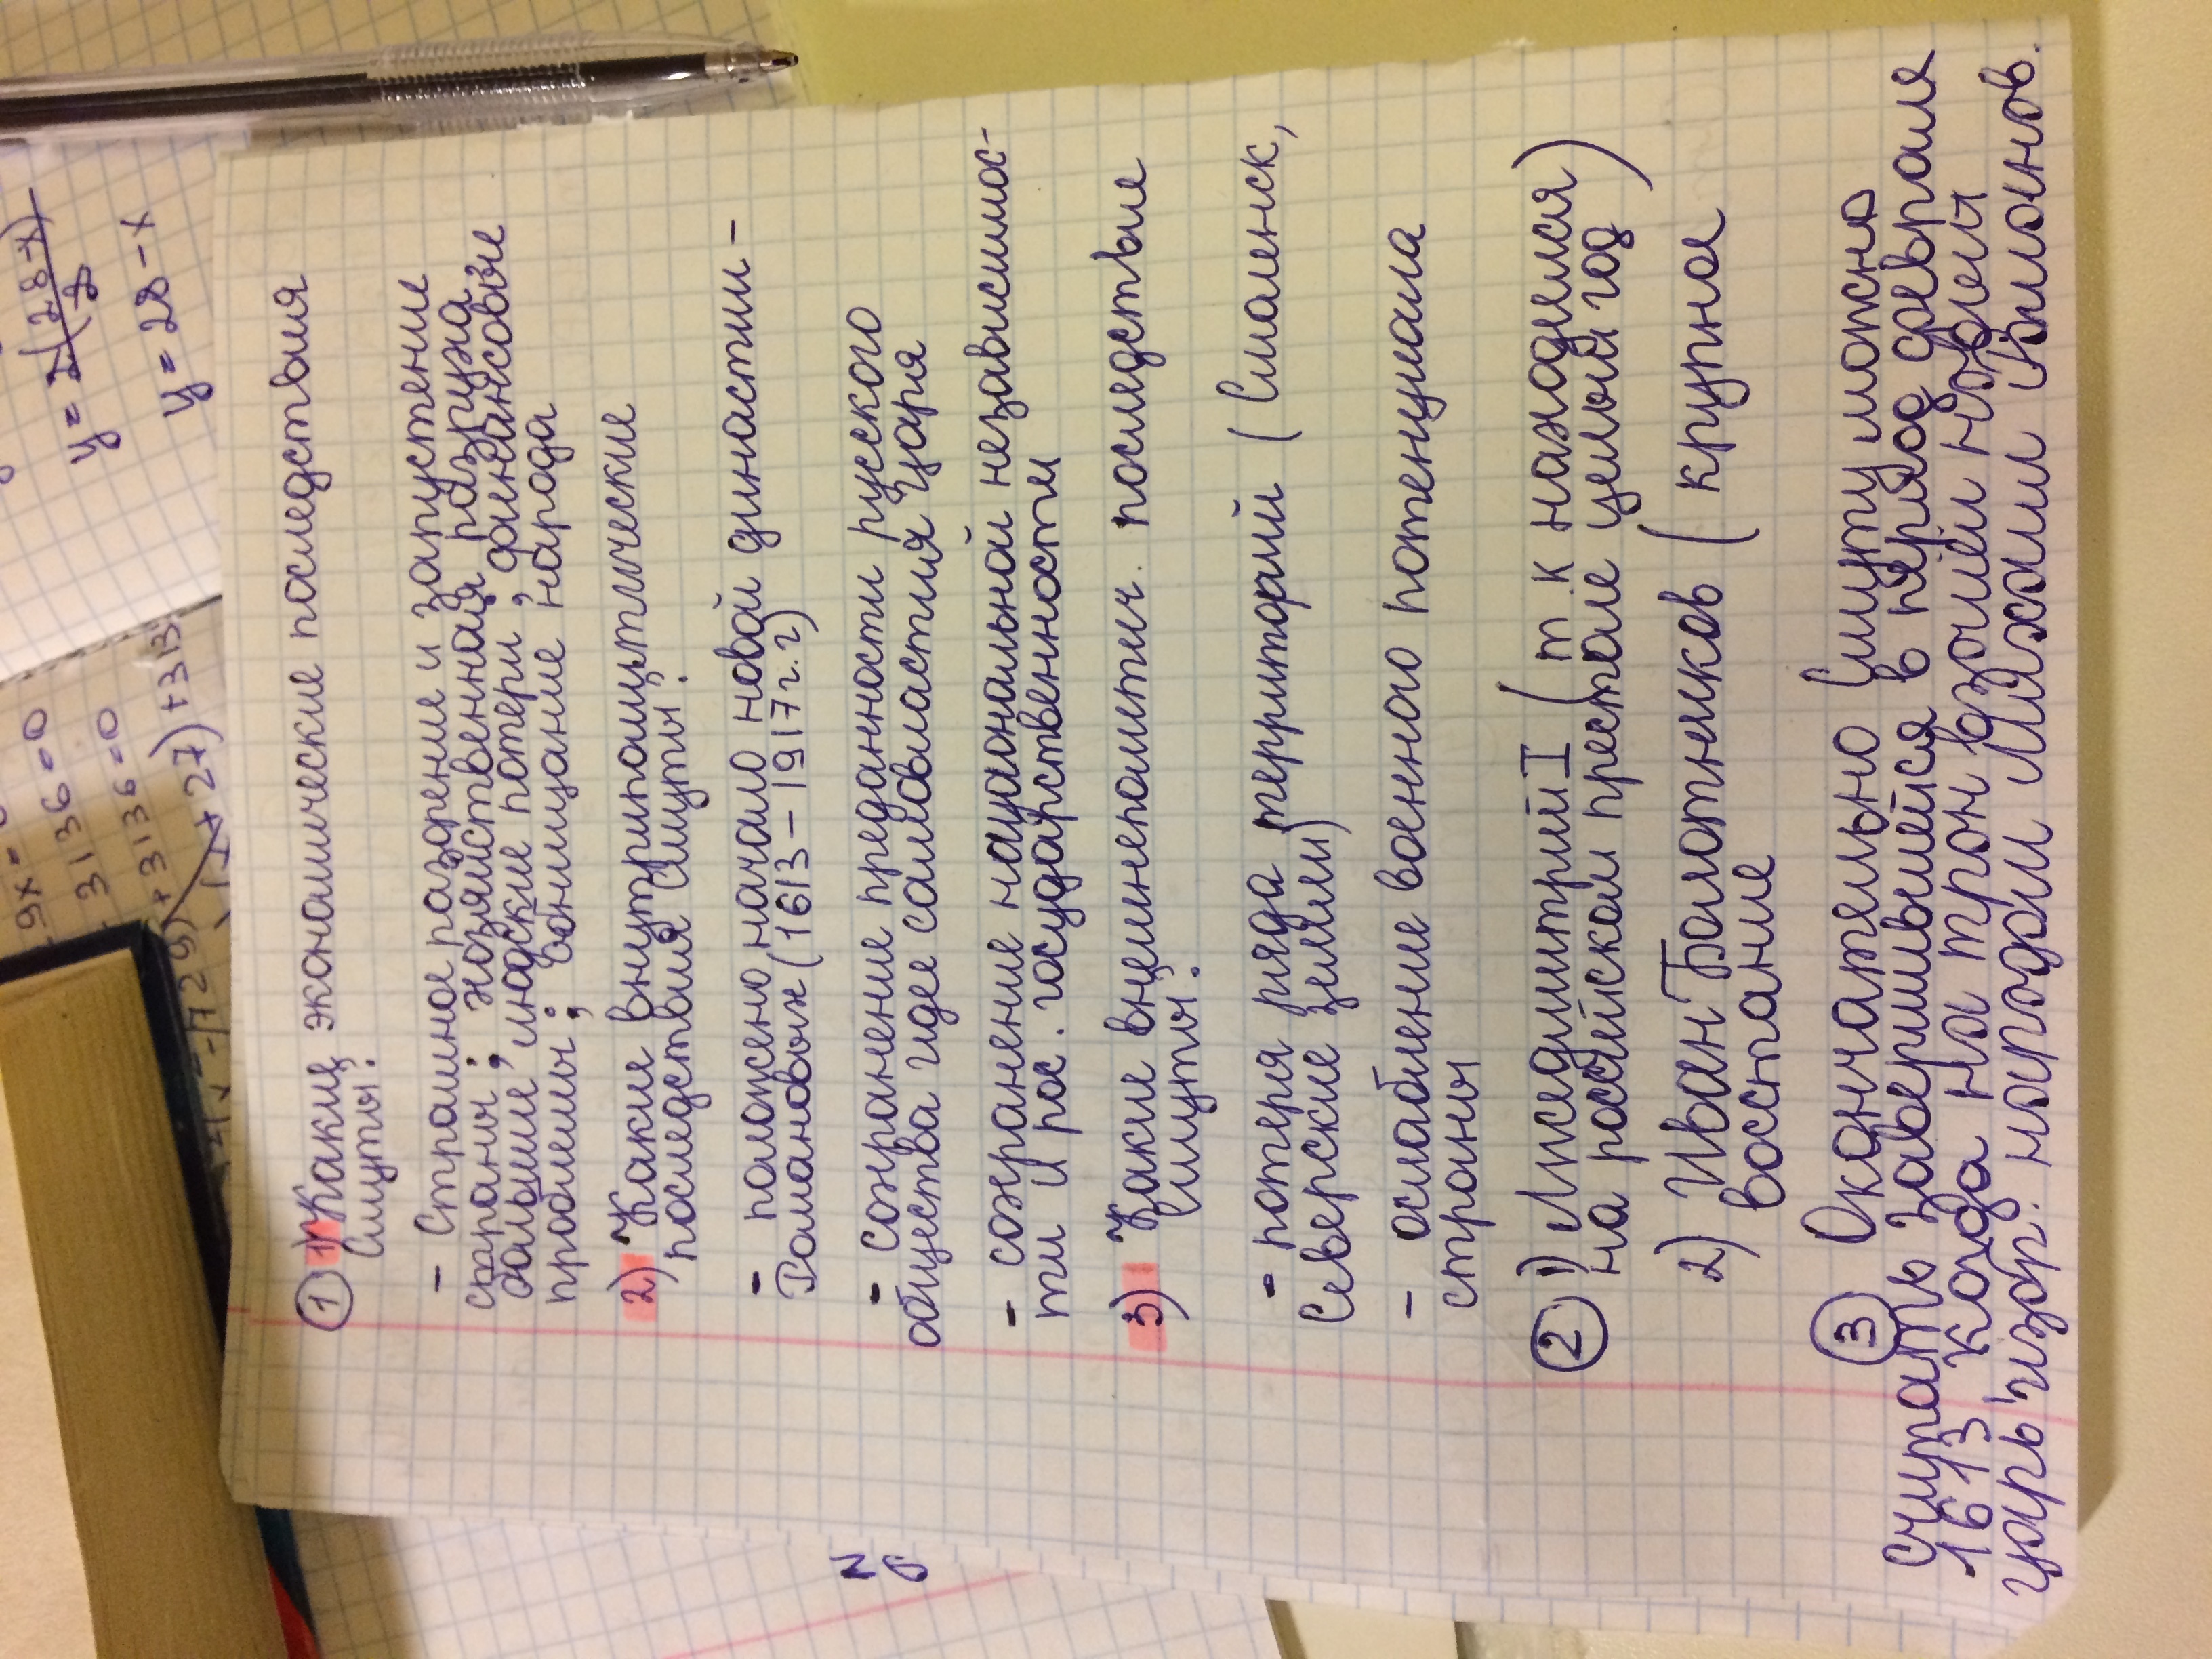 ① 1) Какие экономические последствия
Смуты?
- Страшное разорение и запустение
страны; хозяйственная разруха,
большие людские потери, финансовые
проблемы; обнищание народа
2) Какие внутриполитические
последствия Смуты?
- положено начало новой династии -
Романовых (1613 - 1917 г.г)
- Сохранение преданности русского
общества идее самовластия царя
- сохранение национальной независимос-
ти и рос. государственности
3) Какие внешнеполетич. последствие
Смуты?
- потеря ряда территорий (Смоленск,
Северские земли)
- ослабление военного потенциала
страны
② 1) Лжедмитрий I (т к находился
на российском престоле целый год)
2) Иван Болотников (крупное
восстание
③ Окончательно Смуту можно
считать завершившейся в период февраля
1613 когда на трон взошёл новый
царь избр. народом Михаил Романов.
y = 28 - x
3136 = 0
+ 3136 = 0